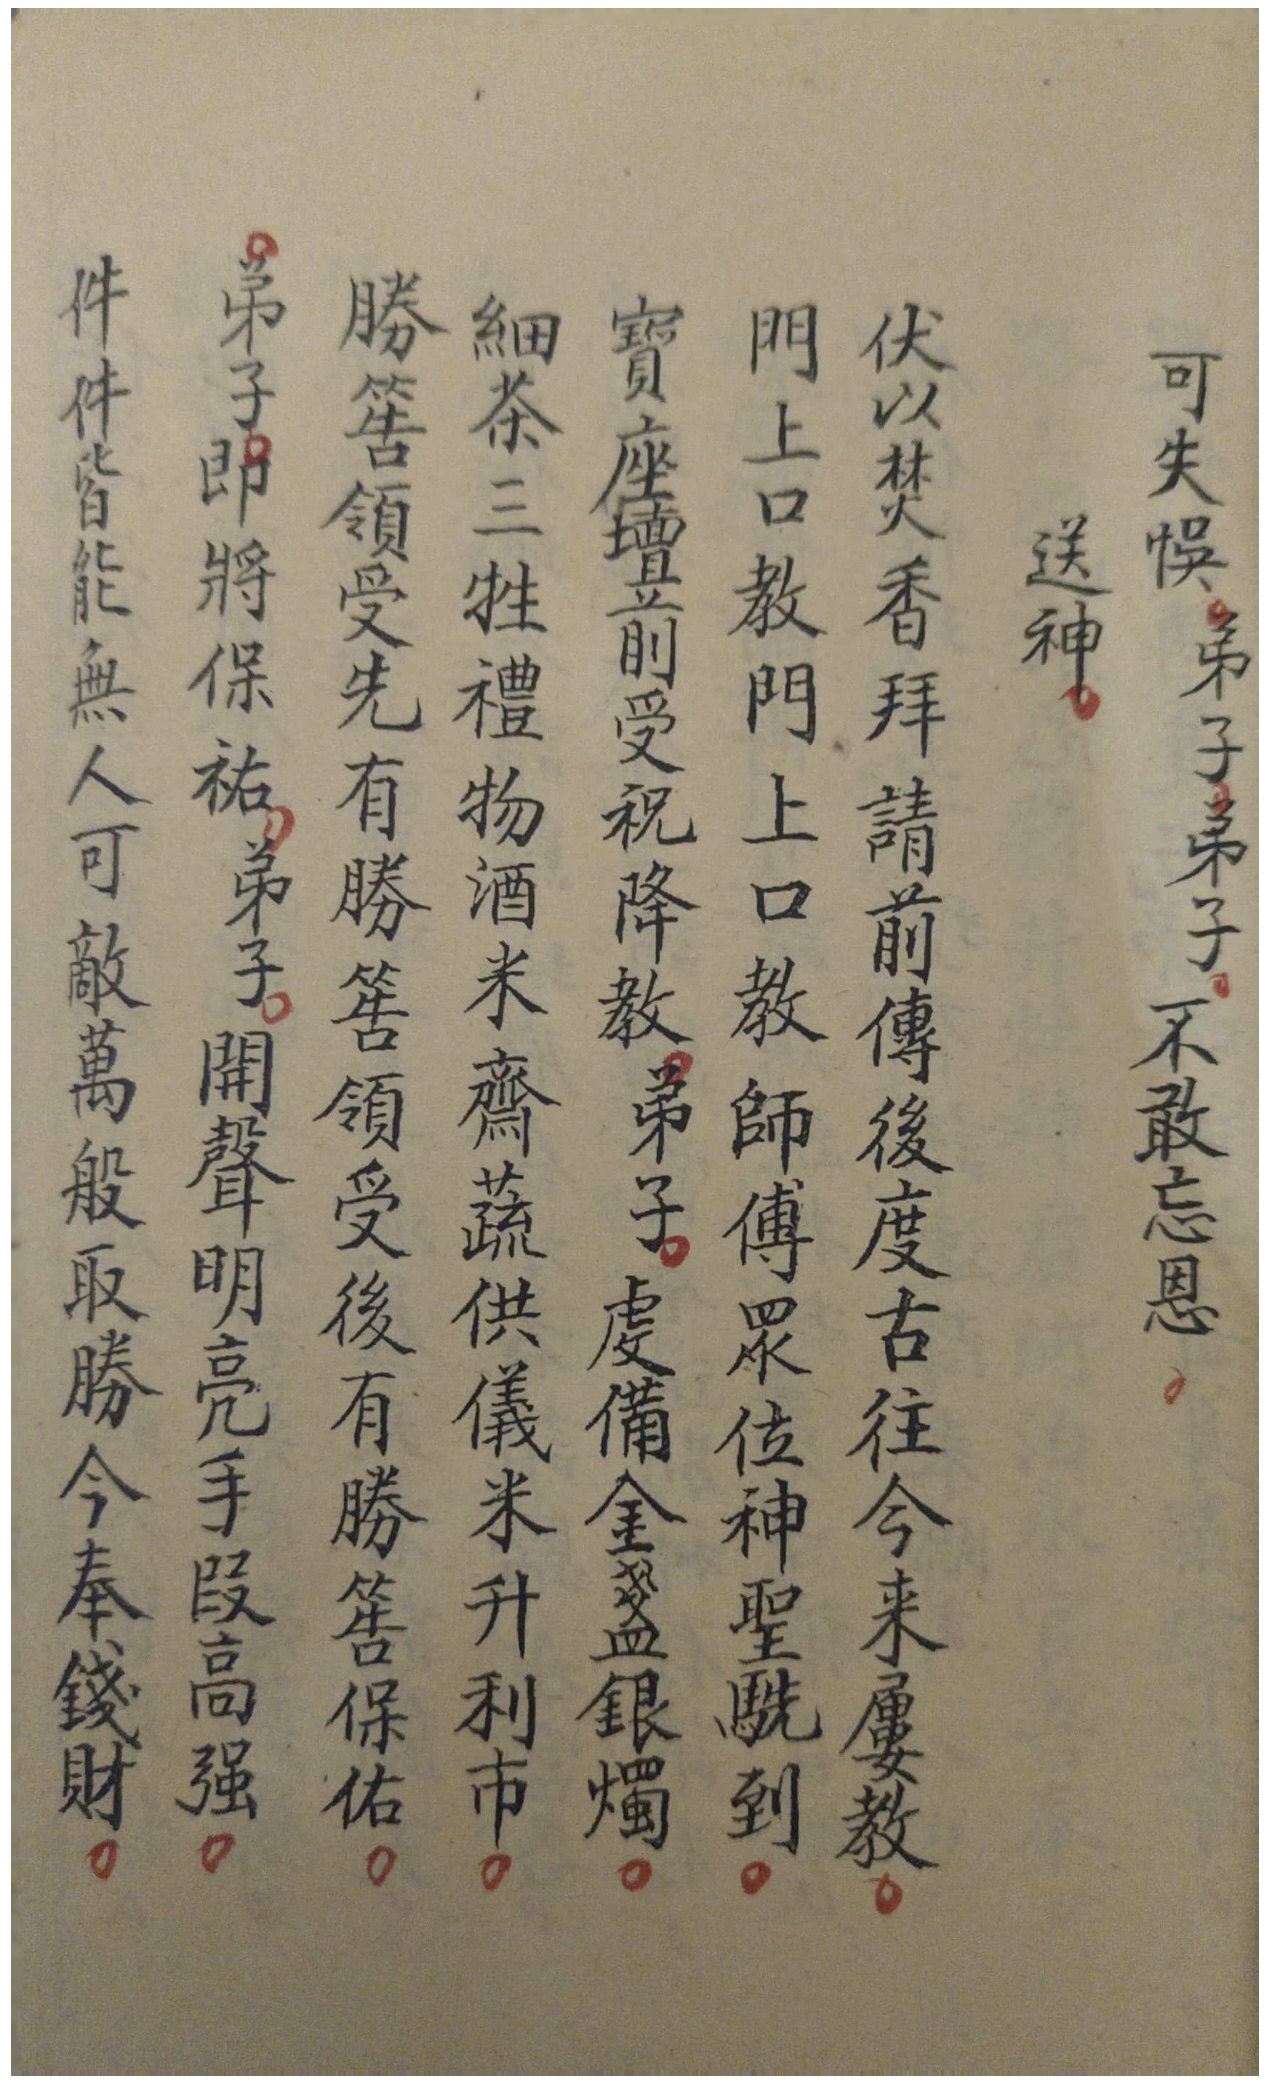 可失悞弟子弟子不敢忘恩
送神
伏以焚香拜請前傳後度古往今来屢教
門上口教門上口教師傅眾位神聖駪到
寶座壇前受祝降教弟子虔備金盞銀燭
細茶三牲禮物酒米齋蔬供儀米升利市
勝筶領受先有勝筶領受後有勝筶保佑
弟子即將保祐弟子開聲明亮手段高强
件件皆能無人可敵萬般取勝今奉錢財